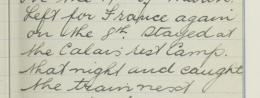 Left for France again
on the 8th. Stayed at
the Calais rest Camp.
that night and caught
the train next